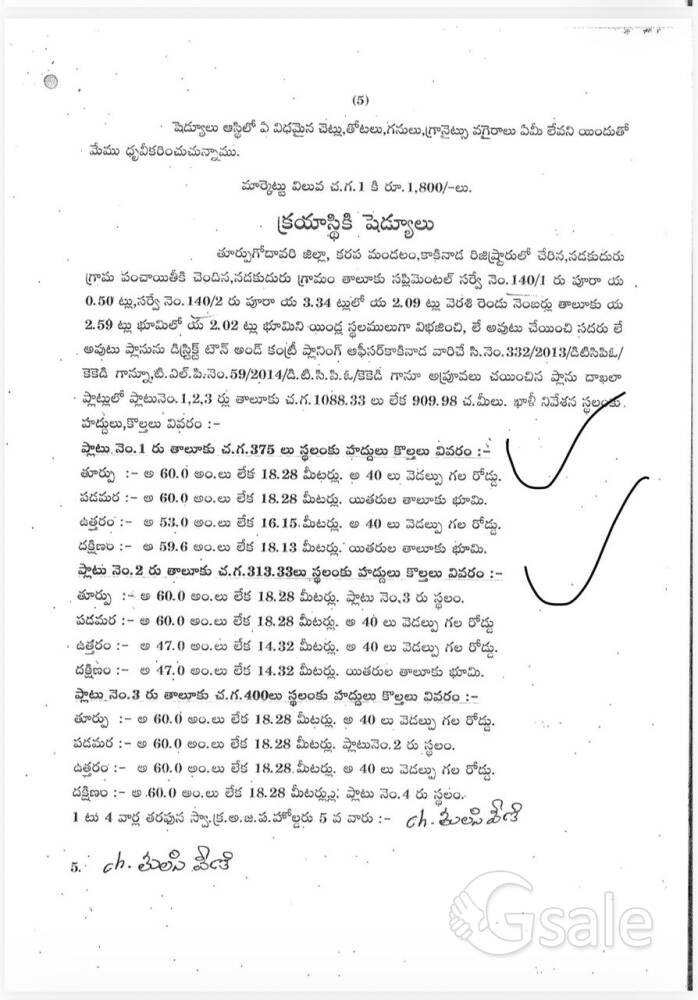 (5)
షెడ్యూలు ఆస్థిలో ఏ విధమైన చెట్లు,తోటలు,గనులు,గ్రానైట్సు వగైరాలు ఏమీ లేవని యిందుతో
మేము ధృవీకరించుచున్నాము.
మార్కెట్టు విలువ చ.గ.1 కి రూ.1,800/-లు.
క్రయాస్థికి షెడ్యూలు
తూర్పుగోదావరి జిల్లా, కరప మండలం,కాకినాడ రిజిష్ట్రారులో చేరిన,నడకుదురు
గ్రామ పంచాయితీకి చెందిన,నడకుదురు గ్రామం తాలూకు సప్లిమెంటల్ సర్వే నెం.140/1 రు పూరా య
0.50 ట్లు,సర్వే నెం.140/2 రు పూరా య 3.34 ట్లులో య 2.09 ట్లు వెరశి రెండు నెంబర్లు తాలూకు య
2.59 ట్లు భూమిలో య 2.02 ట్లు భూమిని యిండ్ల స్థలములుగా విభజించి, లే అవుటు చేయించి సదరు లే
అవుటు ప్లానును డిస్ట్రిక్ట్ టౌన్ అండ్ కంట్రీ ప్లానింగ్ ఆఫీసర్‌కాకినాడ వారిచే సి.నెం.332/2013/డిటిసిపిఓ/
కెకెడి గాన్ను,టి.ఎల్.పి.నెం.59/2014/డి.టి.సి.పి.ఓ/కెకెడి గానూ అప్రూవలు చయించిన ప్లాను దాఖలా
ప్లాట్లులో ప్లాటునెం.1,2,3 ర్లు తాలూకు చ.గ.1088.33 లు లేక 909.98 చ.మీలు. ఖాళీ నివేశన స్థలంకు
హద్దులు,కొల్తలు వివరం :-
ప్లాటు నెం.1 రు తాలూకు చ.గ.375 లు స్థలంకు హద్దులు కొల్తలు వివరం :-
తూర్పు :- అ 60.0 అం.లు లేక 18.28 మీటర్లు. అ 40 లు వెడల్పు గల రోడ్డు.
పడమర :- అ 60.0 అం.లు లేక 18.28 మీటర్లు. యితరుల తాలూకు భూమి.
ఉత్తరం :- అ 53.0 అం.లు లేక 16.15 మీటర్లు. అ 40 లు వెడల్పు గల రోడ్డు.
దక్షిణం :- అ 59.6 అం.లు లేక 18.13 మీటర్లు. యితరుల తాలూకు భూమి.
ప్లాటు నెం.2 రు తాలూకు చ.గ.313.33లు స్థలంకు హద్దులు కొల్తలు వివరం :-
తూర్పు :- అ 60.0 అం.లు లేక 18.28 మీటర్లు. ప్లాటు నెం.3 రు స్థలం.
పడమర :- అ 60.0 అం.లు లేక 18.28 మీటర్లు. అ 40 లు వెడల్పు గల రోడ్డు
ఉత్తరం :- అ 47.0 అం.లు లేక 14.32 మీటర్లు. అ 40 లు వెడల్పు గల రోడ్డు.
దక్షిణం :- అ 47.0 అం.లు లేక 14.32 మీటర్లు. యితరుల తాలూకు భూమి.
ప్లాటు నెం.3 రు తాలూకు చ.గ.400లు స్థలంకు హద్దులు కొల్తలు వివరం :-
తూర్పు :- అ 60.0 అం.లు లేక 18.28 మీటర్లు. అ 40 లు వెడల్పు గల రోడ్డు.
పడమర :- అ 60.0 అం.లు లేక 18.28 మీటర్లు. ప్లాటునెం.2 రు స్థలం.
ఉత్తరం :- అ 60.0 అం.లు లేక 18.28 మీటర్లు. అ 40 లు వెడల్పు గల రోడ్డు.
దక్షిణం :- అ.60.0 అం.లు లేక 18.28 మీటర్లుు. ప్లాటు నెం.4 రు స్థలం.
1 టు 4 వార్ల తరపున స్వా.క్ర.అ.జ.ప.హోల్డరు 5 వ వారు :- ch. తులసి వేణి
5. ch. తులసి వేణి
Gsale